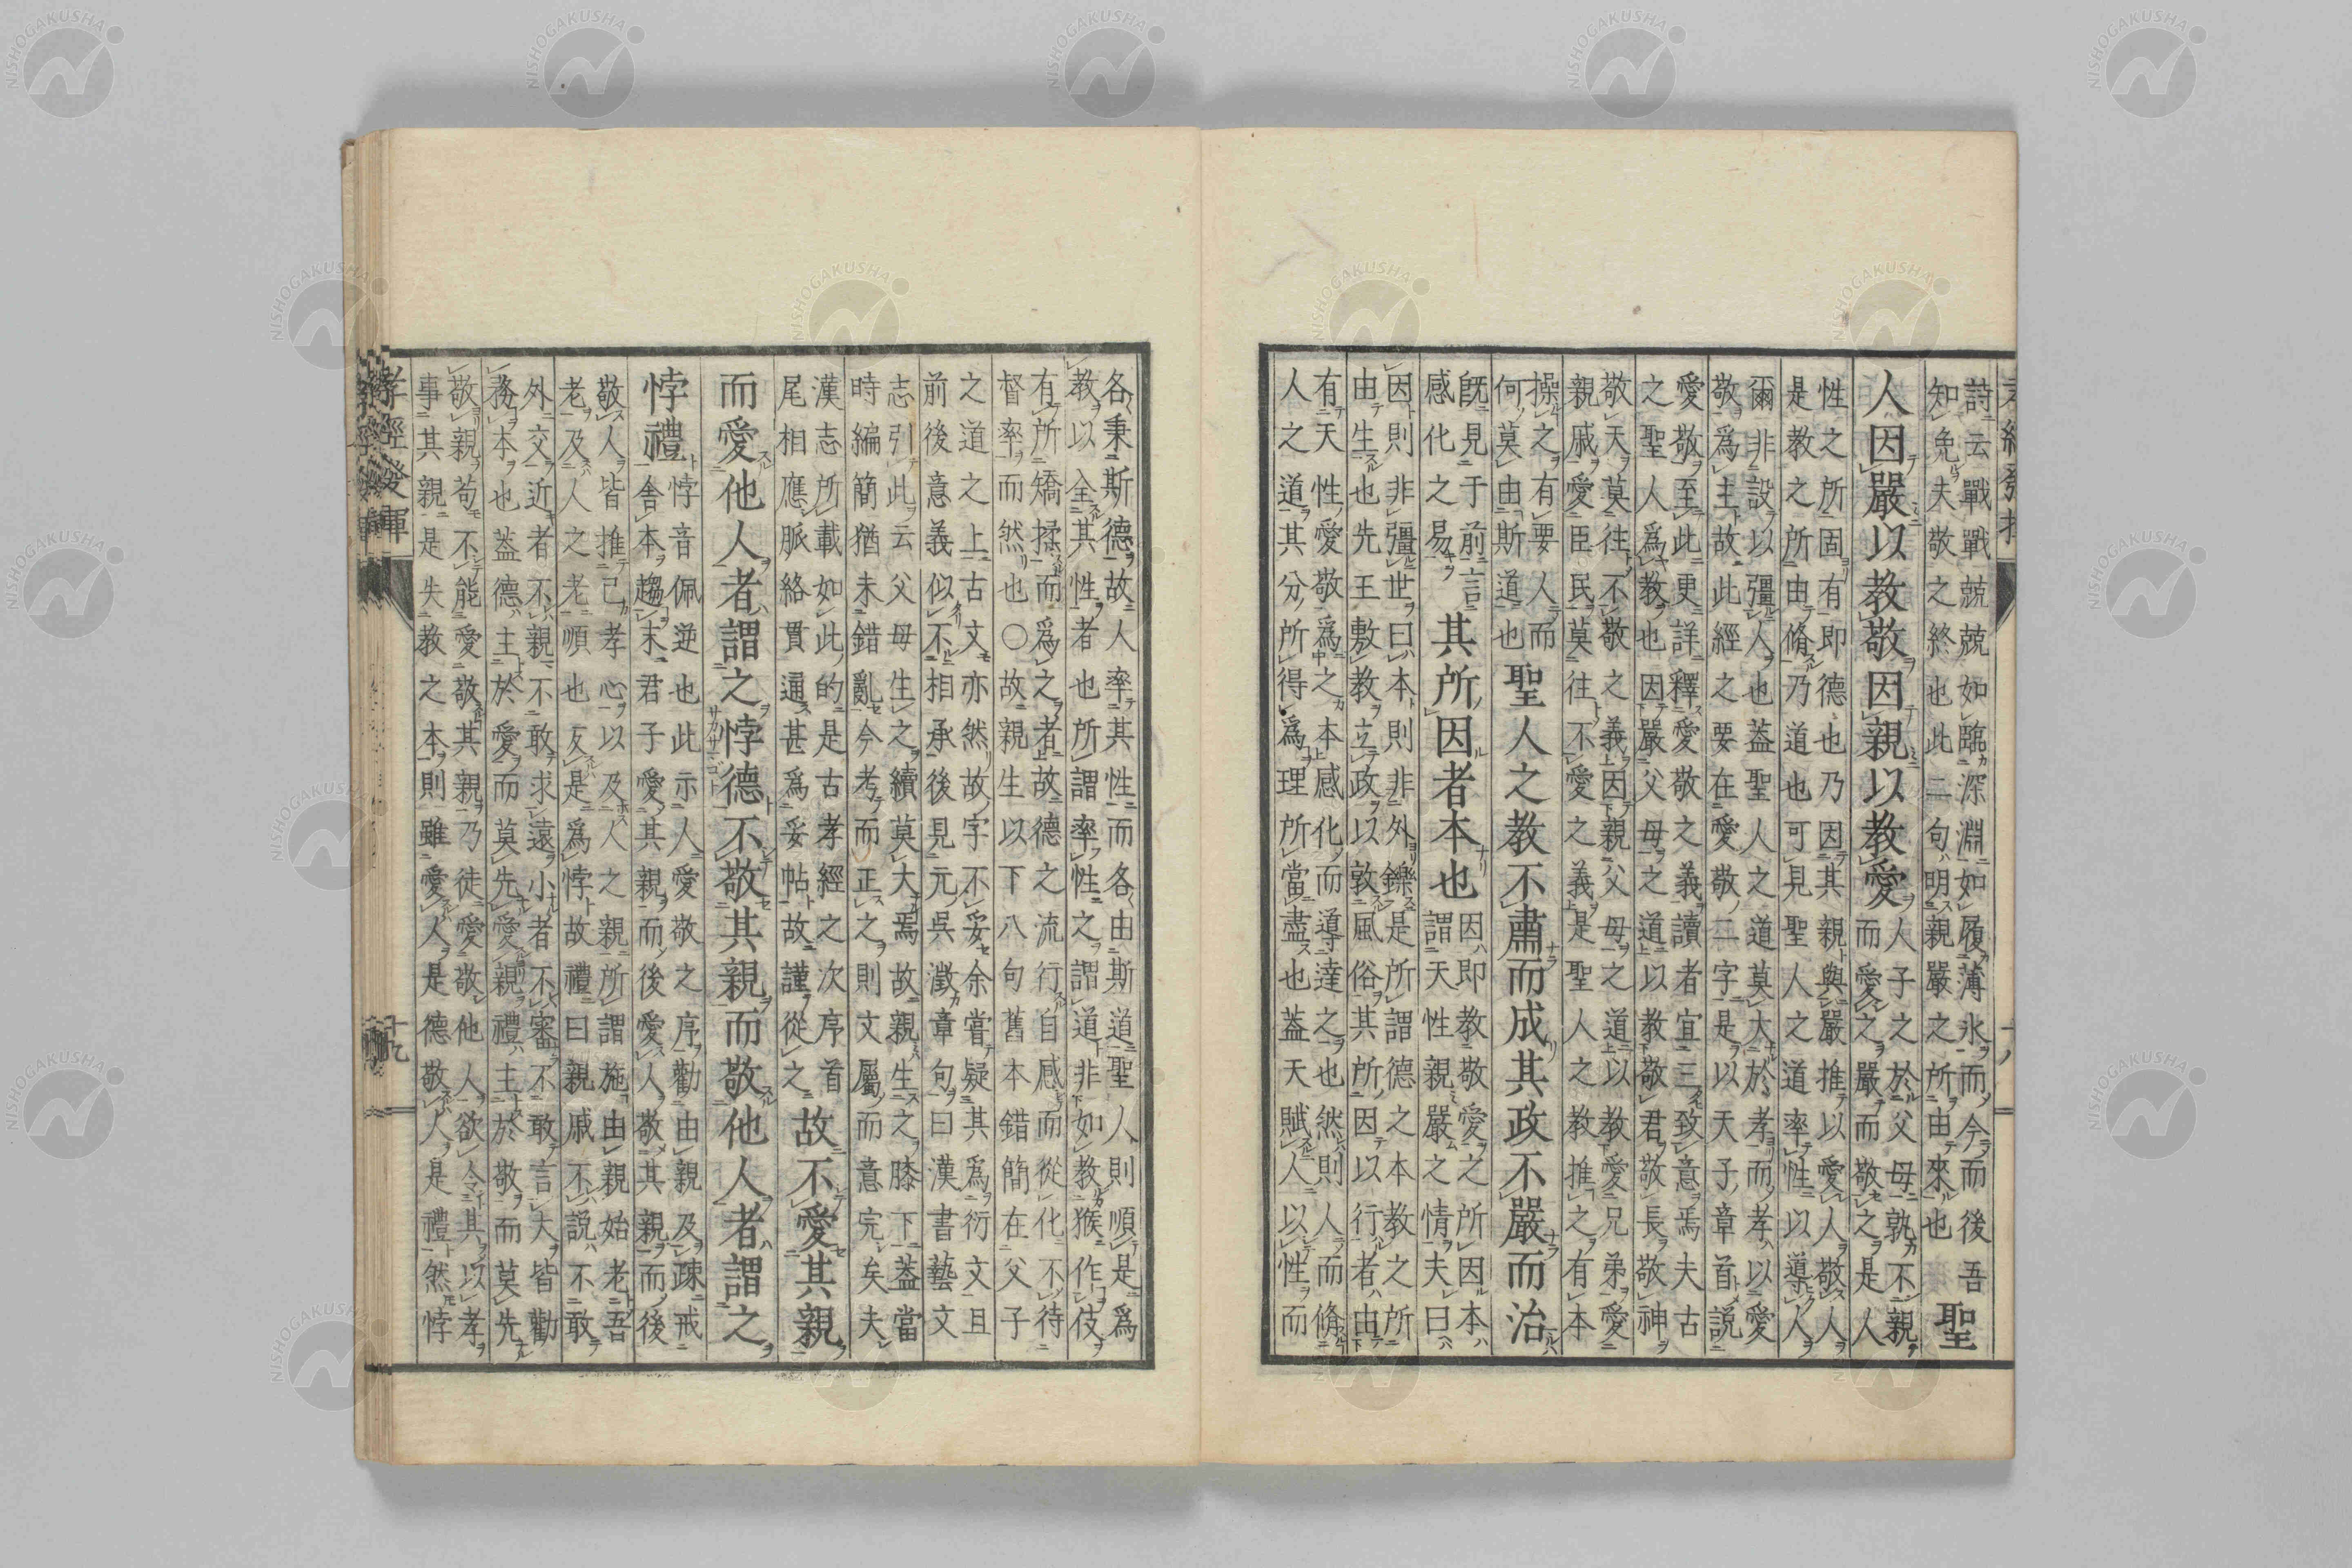 詩云戰戰兢兢如臨深淵如履薄氷而今而後吾
知免夫敬之終也此二句明親嚴之所由來也
聖
人因嚴以教敬因親以教愛
人子之於父母孰不親
而愛之嚴而敬之是人
性之所固有即德也乃因其親與嚴推以愛人敬人
是教之所由脩乃道也可見聖人之道率性以導人
爾非設以彊人也葢聖人之道莫大於孝而孝以愛
敬爲主故此經之要在愛敬二字是以天子章首説
愛敬至此更詳釋愛敬之義讀者宜三致意焉夫古
之聖人爲教也因嚴父母之道以教敬君敬長敬神
敬天莫往不敬之義因親父母之道以教愛兄弟愛
親戚愛臣民莫往不愛之義是聖人之教推之有本
操之有要人而
何莫由斯道也
聖人之教不肅而成其政不嚴而治
旣見于前言
感化之易
其所因者本也
因即教敬愛之所因本
謂天性親嚴之情夫曰
因則非彊世曰本則非外鑠是所謂德之本教之所
由生也先王敷教立政以敦風俗其所因以行者由
有天性愛敬爲之本感化而導達之也然則人而脩
人之道其分所得爲理所當盡也葢天賦人以性而
各秉斯德故人率其性而各由斯道聖人則順是爲
教以全其性者也所謂率性之謂道非如教猴作伎
有所矯揉而爲之者故德之流行自感而從化不待
督率而然也〇故親生以下八句舊本錯簡在父子
之道之上古文亦然故字不妥余嘗疑其爲衍文且
前後意義似不相承後見元吳澂章句曰漢書藝文
志引此云父母生之續莫大焉故親生之膝下葢當
時編簡猶未錯亂今考而正之則文屬而意完矣夫
漢志所載如此的是古孝經之次序首
尾相應脈絡貫通甚爲妥帖故謹從之
故不愛其親
而愛他人者謂之悖德不敬其親而敬他人者謂之
悖禮
悖音佩逆也此示人愛敬之序勸由親及疎戒
舍本趨末君子愛其親而後愛人敬其親而後
敬人皆推己孝心以及人之親所謂施由親始老吾
老及人之老順也反是爲悖故禮曰親戚不説不敢
外交近者不親不敢求遠小者不審不敢言大皆勸
務本也葢德主於愛而莫先愛親禮主於敬而莫先
敬親苟不能愛敬其親乃徒愛敬他人欲令其以孝
事其親是失教之本則雖愛人是德敬人是禮然悖
孝經發揮
十九